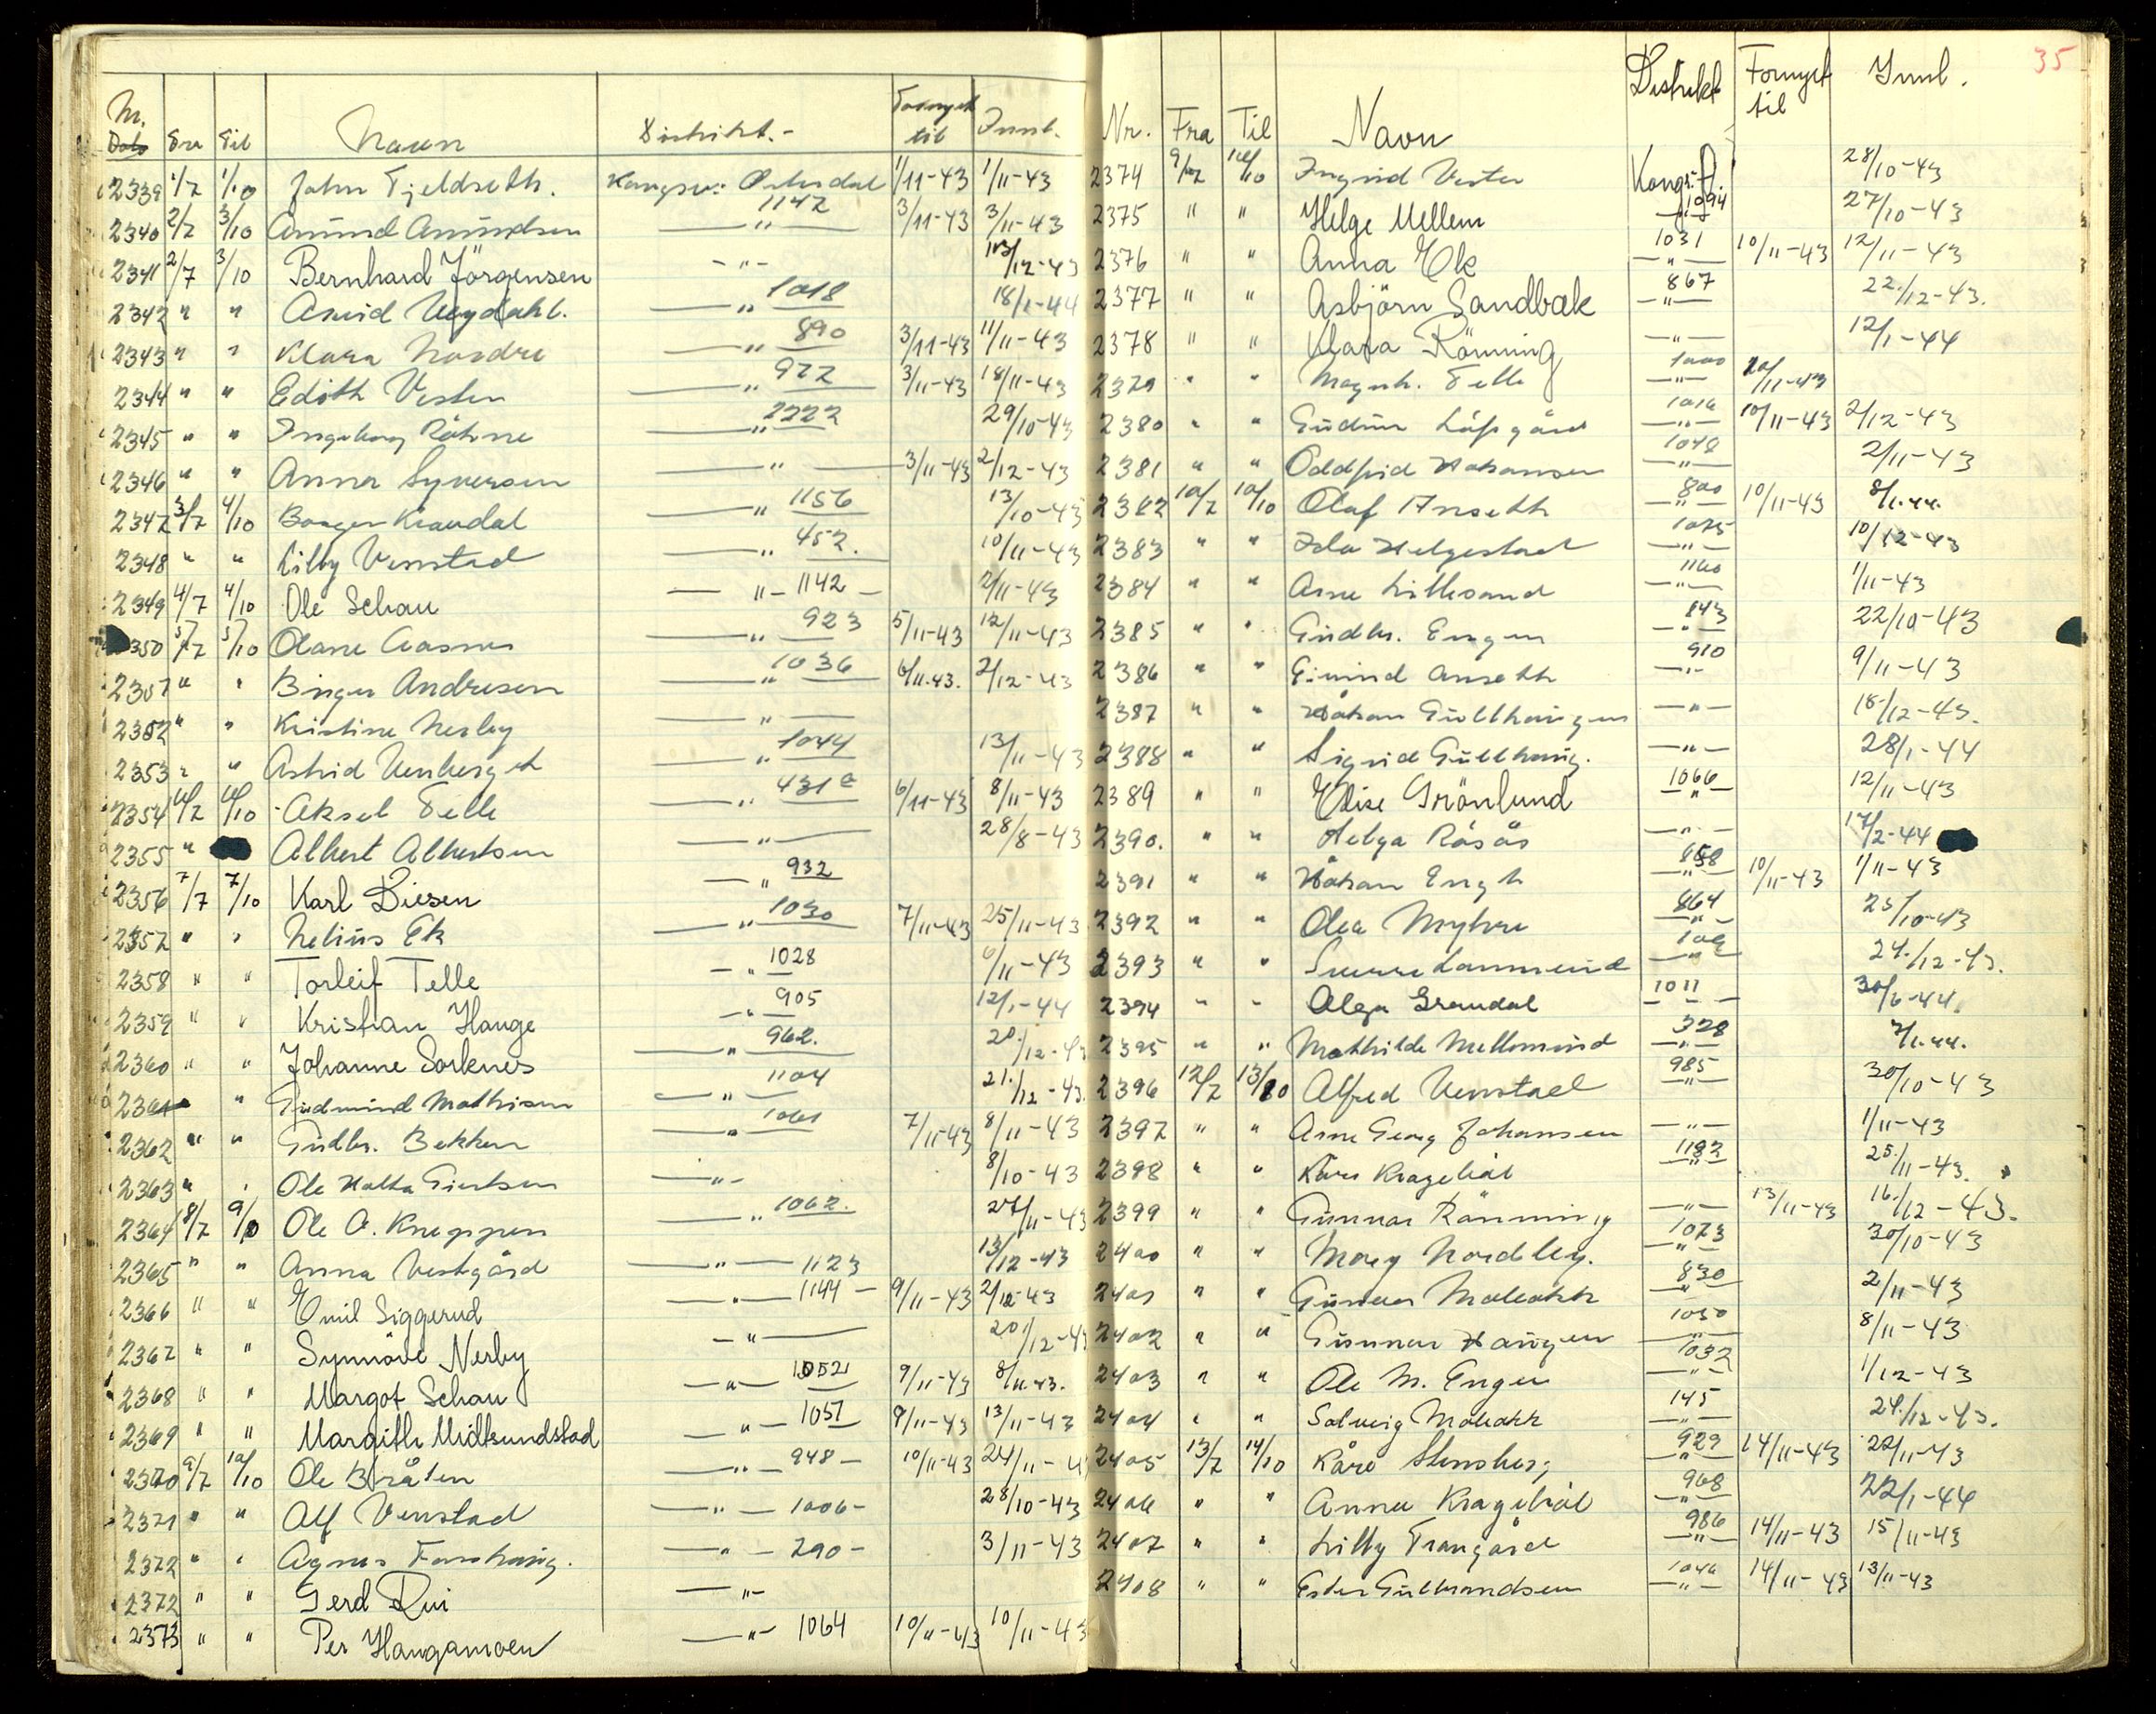 Nr. Dato Fra Til Navn Distrikt.- Fornyet til Innl.
2339 1/7 1/10 John Fjeldseth. Kongsv: Østerdal 1/11-43 1/11-43
2340 2/7 3/10 Amund Amundsen —"— 1142 3/11-43 3/11-43
2341 2/7 3/10 Bernhard Jörgensen -"- 13/12-43
2342 " " Asvid —"— 1018 18/1-44
2343 " " Klara Nordre —"— 890 3/11-43 11/11-43
2344 " " Edith Vesten —"— 922 3/11-43 18/11-43
2345 " " Ingeborg —"— 2222 29/10-43
2346 " " Anna Syversen —"— 3/11-43 2/12-43
2347 3/7 4/10 Borger —"— 1156 13/10-43
2348 " " Lilly Venstad —"— 452. 10/11-43
2349 4/7 4/10 Ole Schau —"— 1142 — 2/11-43
2350 5/7 5/10 Olane Aasnes —"— 923 5/11-43 12/11-43
2351 " " Birger Andresen —"— 1036 6/11.43. 2/12-43
2352 " " Kristine Nerby —"—
2353 " " Astrid Uenberget —"— 1044 13/11-43
2354 6/7 6/10 Aksel Telle —"— 431a 6/11-43 8/11-43
2355 " Albert Albertsen —"— 28/8-43
2356 7/7 7/10 Karl Diesen —"— 932
2357 " " Nelius Ek —"— 1030 7/11-43 25/11-43
2358 " " Torleif Telle —"— 1028 6/11-43
2359 " " Kristian Hauge —"— 905 12/1-44
2360 " " Johanne Sorknes —"— 962. 20./12-43
2361 " Gudmund Mathisen —"— 1104 21./12-43.
2362 " " Gudbr. Bekken —"— 1061 7/11-43 8/11-43
2363 " " Ole Holta Giertsen —"— 8/10-43
2364 8/7 9/10 Ole O. Kneppen —"— 1062. 27/11-43
2365 " " Anna Vestgård —"— 1123 13/12-43
2366 " " Emil Siggerud —"— 1144 — 9/11-43 2/12-43
2367 " " Synnöve Nerby —"— 20/12-43
2368 " " Margot Schau —"— 1052 9/11-43 8/11.43.
2369 " " Margith Midtsundstad —"— 1051 9/11-43 13/11-43
2370 9/7 10/10 Ole Bråten —"— 948 — 10/11-43 24/11-43
2371 " " Alf Venstad —"— 1006 - 28/10-43
2372 " " Agnes —"— 290 - 3/11-43
2372 " " Gerd Rui —"—
2373 " " Per Haugamoen —"— 1064 10/11-43 10/11-43
35
Nr. Fra Til Navn Distrikt Fornyet til Innl.
2374 9/7 10/10 Ingrid Vesten Kongsv. Ø. 28/10-43
2375 " " Helge Mellem 1094 27/10-43
2376 " " Anna Ek 1031 —"— 10/11-43 12/11-43
2377 " " Asbjörn Sandbæk 867 —"— 22./12-43.
2378 " " Klara Rönning —"— 12/1-44
2379 " " Magnh. Telle 1000 —"— 10/11-43
2380 " " Gudrun 1016 —"— 10/11-43 2/12-43
2381 " " Oddfrid Johansen 1048 —"— 2/11-43
2382 10/7 10/10 Olaf Anseth 800 —"— 10/11-43 8/1.44.
2383 " " Ida Helgestad 1025 —"— 10/12-43
2384 " " Arne Lillesand 1160 —"— 1/11-43
2385 " " Gudbr. Engen 843 —"— 22/10-43
2386 " " Eivind Anseth 910 —"— 9/11-43
2387 " " Håkan Gullhaugen —"— 18./12-43.
2388 " " Sigrid Gullhaug. —"— 28/1-44
2389 " " Elise Grönlund 1066 —"— 12/11-43
2390. " " Helga Råsås —"— 17/2-44
2391 " " Håkan Engh 858 —"— 10/11-43 1/11-43
2392 " " Olea Myhre 864 —"— 25/10-43
2393 " " Sverre —"— 24./12-43.
2394 " " Olga Grøndal 1011 — — — 30/6-44.
2395 " " Mathilde Mellemsund 328 —"— 7/1.44.
2396 12/7 13/10 Alfred Venstad 985 —"— 30/10-43
2397 " " Arne Georg Johansen —"— 1/11-43
2398 " " Kåre Kragebøl 1182 —"— 25./11-43.
2399 " " Gunnar Rönning —"— 13/11-43 16./12-43.
2400 " " Mary Nordby. 1073 —"— 30/10-43
2401 " " Gunnar Mobakk 830 —"— 2/11-43
2402 " " Gunnar Haugen 1050 —"— 8/11-43
2403 " " Ole M. Enger 1032 —"— 1/12-43
2404 " " Solveig Mobakk 145 —"— 24./12-43.
2405 13/7 14/10 Kåre Stensberg 929 —"— 14/11-43 22/11-43
2406 " " Anna Kragebøl 968 —"— 22/1-44
2407 " " Lilly Trangård 986 —"— 14/11-43 15/11-43
2408 " " Ester Gulbrandsen 1046 —"— 14/11-43 13/11-43